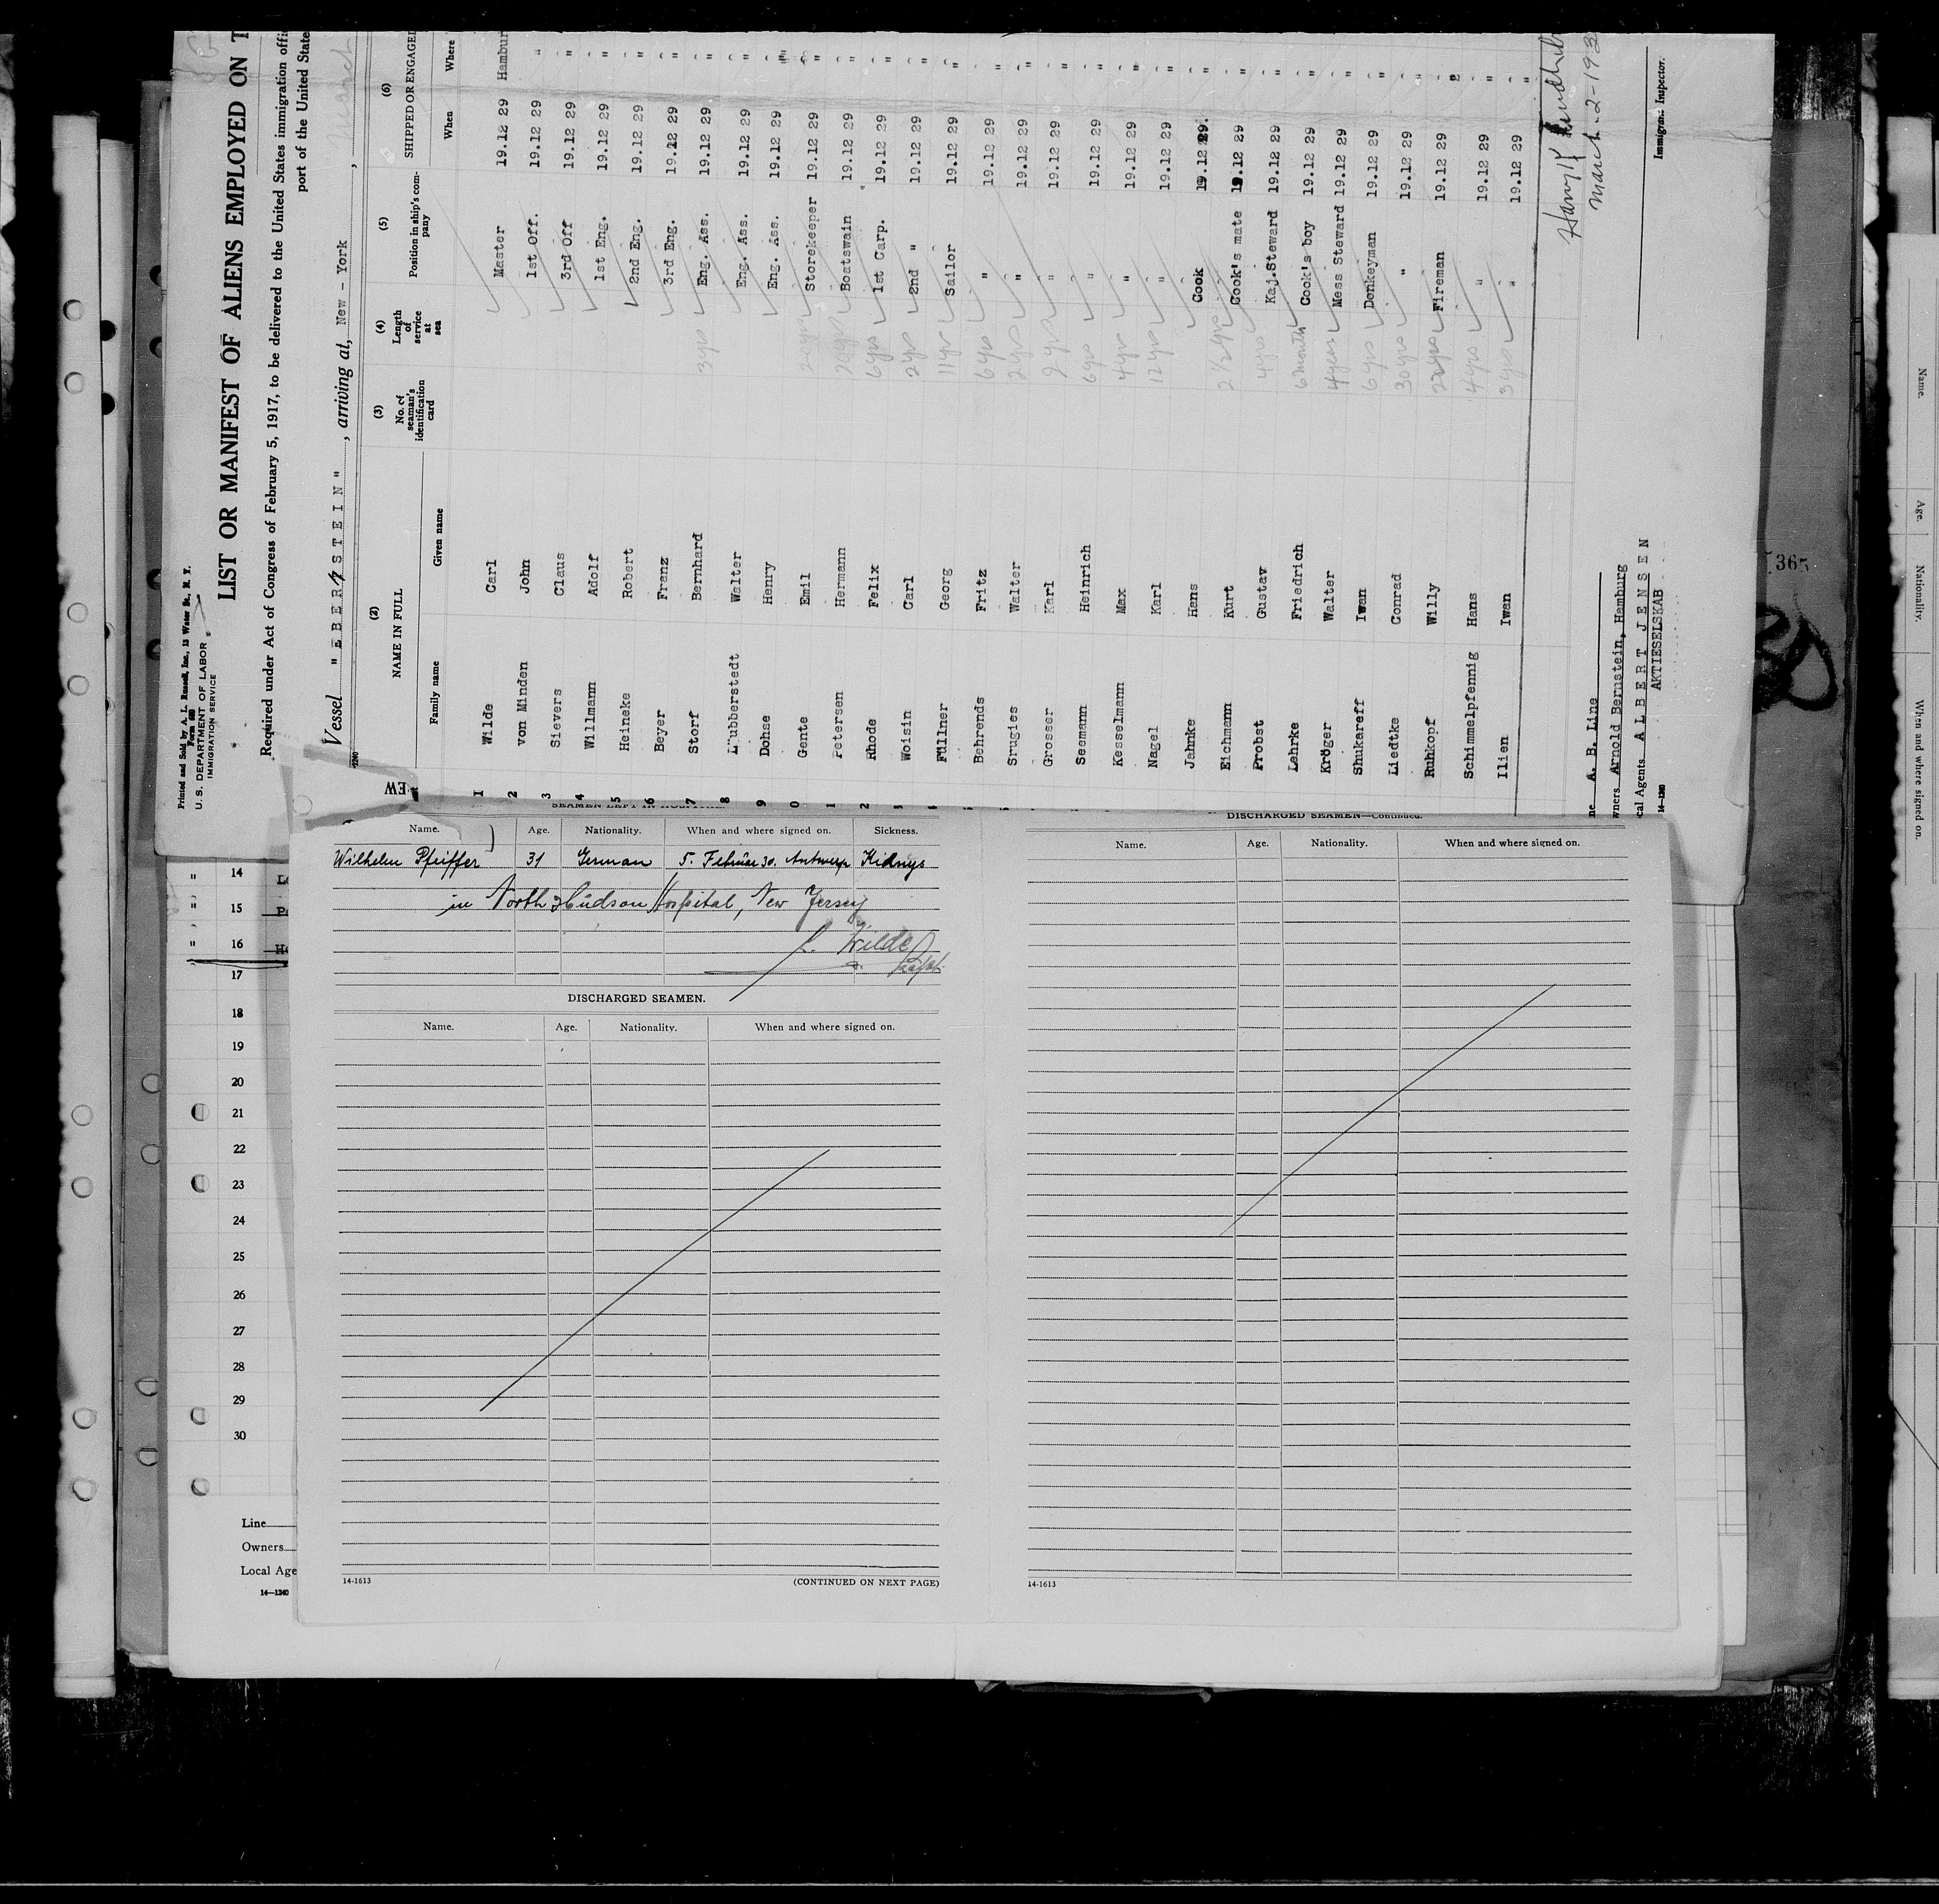 Printed and Sold by A. L. Russell, Inc., 13 Water St., N. Y.
U. S. DEPARTMENT OF LABOR
IMMIGRATION SERVICE
LIST OR MANIFEST OF ALIENS EMPLOYED ON T
Required under Act of Congress of February 5, 1917, to be delivered to the United States immigration offi
port of the United State
Vessel "EBERSTEIN", arriving at, New - York, March
(2) (3) (4) (5) (6)
NAME IN FULL No. of seaman's identification card Length of service at sea Position in ship's company SHIPPED OR ENGAGED
Family name Given name When Where
1 Wilde Carl Master 19.12 29 Hambur
2 von Minden John 1st Off. 19.12 29 "
3 Sievers Claus 3rd Off 19.12 29 "
4 Willmann Adolf 1st Eng. 19.12 29 "
5 Heineke Robert 2nd Eng. 19.12 29 "
6 Beyer Franz 3rd Eng. 19.12 29 "
7 Storf Bernhard 3 yrs Eng. Ass. 19.12 29 "
8 Lubberstedt Walter Eng. Ass. 19.12 29 "
9 Dohse Henry Eng. Ass. 19.12 29 "
0 Gente Emil Storekeeper 19.12 29 "
1 Petersen Hermann Boatswain 19.12 29 "
2 Rhode Felix 6 yrs 1st Carp. 19.12 29 "
Woisin Carl 2 yrs 2nd " 19.12 29 "
Füllner Georg 11 yrs Sailor 19.12 29 "
Behrends Fritz 6 yrs " 19.12 29 "
Srugies Walter 2 yrs " 19.12 29 "
Grosser Karl 2 yrs " 19.12 29 "
Seemann Heinrich 6 yrs " 19.12 29 "
Kesselmann Max 4 yrs " 19.12 29 "
Nagel Karl 12 yrs " 19.12 29 "
Jahnke Hans Cook 19.12 29. "
Eichmann Kurt 2 1/2 yrs Cook's mate 19.12 29 "
Probst Gustav 4 yrs Kaj.Steward 19.12 29 "
Lehrke Friedrich 6 month Cook's boy 19.12 29 "
Kröger Walter 4 years Mess Steward 19.12 29 "
Shukareff Iwan 6 yrs Donkeyman 19.12 29 "
Liedtke Conrad 30 yrs " 19.12 29 "
Ruhkopf Willy 22 yrs Fireman 19.12 29 "
Schimmelpfennig Hans 4 yrs " 19.12 29 "
Ilien Iwan 3 yrs " 19.12 29 "
March-2-193
Immigrant Inspector.
ne A. B. Line
wners Arnold Bernstein, Hamburg
cal Agents ALBERT JENSEN
AKTIESELSKAB
14-1240
365
Name. Age. Nationality. When and where signed on. Sickness.
Wilhelm Pfeiffer 31 German 5. Februar 30. Antwerp Kidneys
in North Hudson Hospital, New Jersey
C. Wilde
Kapt.
DISCHARGED SEAMEN.
Name. Age. Nationality. When and where signed on.
14-1613 (CONTINUED ON NEXT PAGE)
DISCHARGED SEAMEN—Continued.
Name. Age. Nationality. When and where signed on.
14-1613
" 14
" 15
" 16
17
18
19
20
21
22
23
24
25
26
27
28
29
30
Line
Owners
Local Age
14-1240
Name. Age. Nationality. When and where signed on.